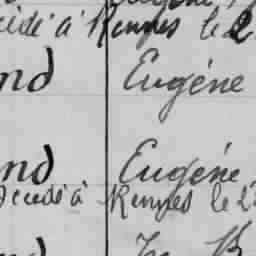 décidé à Rennes le 2
nd Eugéne
nd Eugéne
Décédé à Rennes le 2